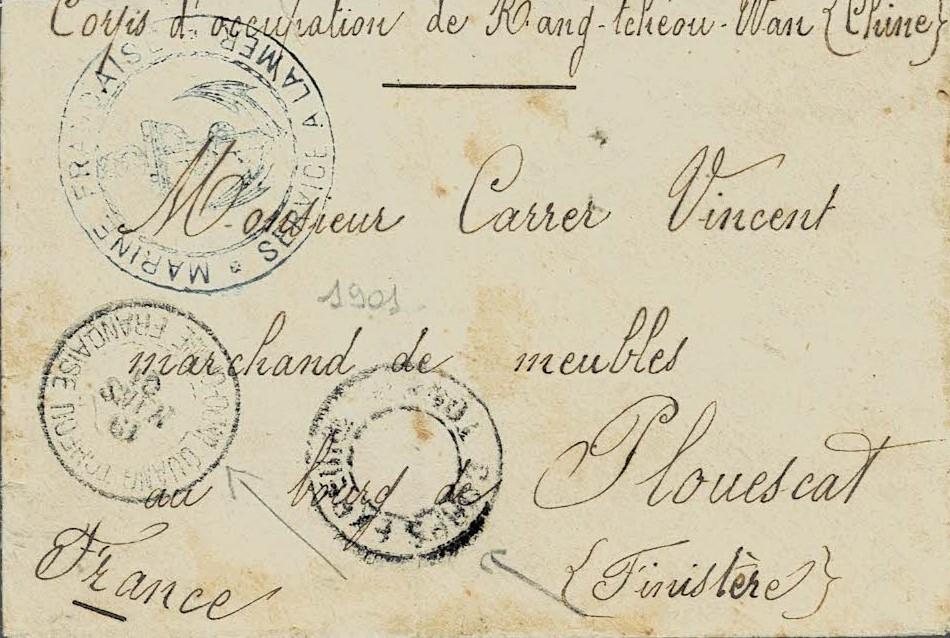 Corps d'occupation de Kang-tchéou-Wan {Chine}
MARINE FRANÇAISE * SERVICE A LA MER
Monsieur Carrer Vincent
1901
marchand de meubles
QUANG TCHEOU
FRANÇAISE
19
MARS
01
au bourg de Plouescat
CORPS EXPED
France
{Finistère}